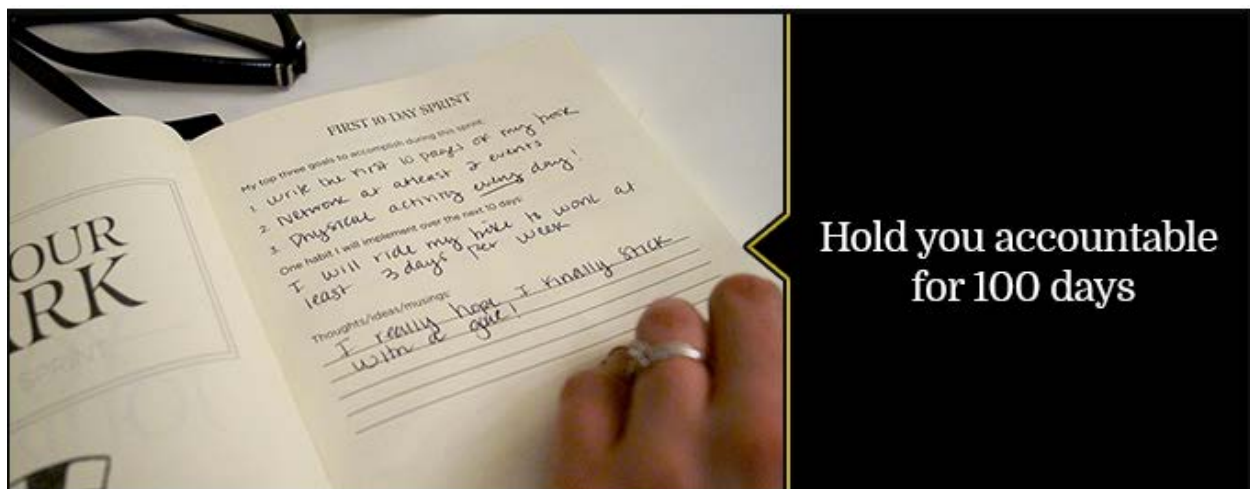 OUR
RK
SPRINT
FIRST 10-DAY SPRINT
My top three goals to accomplish during this sprint:
1. Write the first 10 pages of my book
2. Network at atleast 2 events
3. Physical activity every day!
One habit I will implement over the next 10 days:
I will ride my bike to work at
least 3 days per week
Thoughts/ideas/musings:
I really hope I finally stick
with a goal!
Hold you accountable
for 100 days